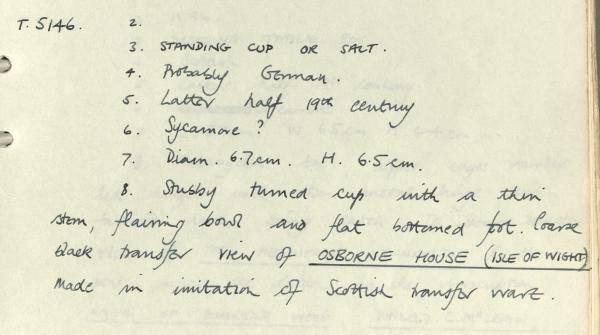 T. 5146. 2.
3. STANDING CUP OR SALT.
4. Probably German.
5. Latter half 19th century
6. Sycamore?
7. Diam. 6.7cm. H. 6.5cm.
8. Stubby turned cup with a thin
stem, flairing bowl and flat bottomed foot. Coarse
black transfer view of OSBORNE HOUSE (ISLE OF WIGHT)
Made in imitation of Scottish transfer ware.